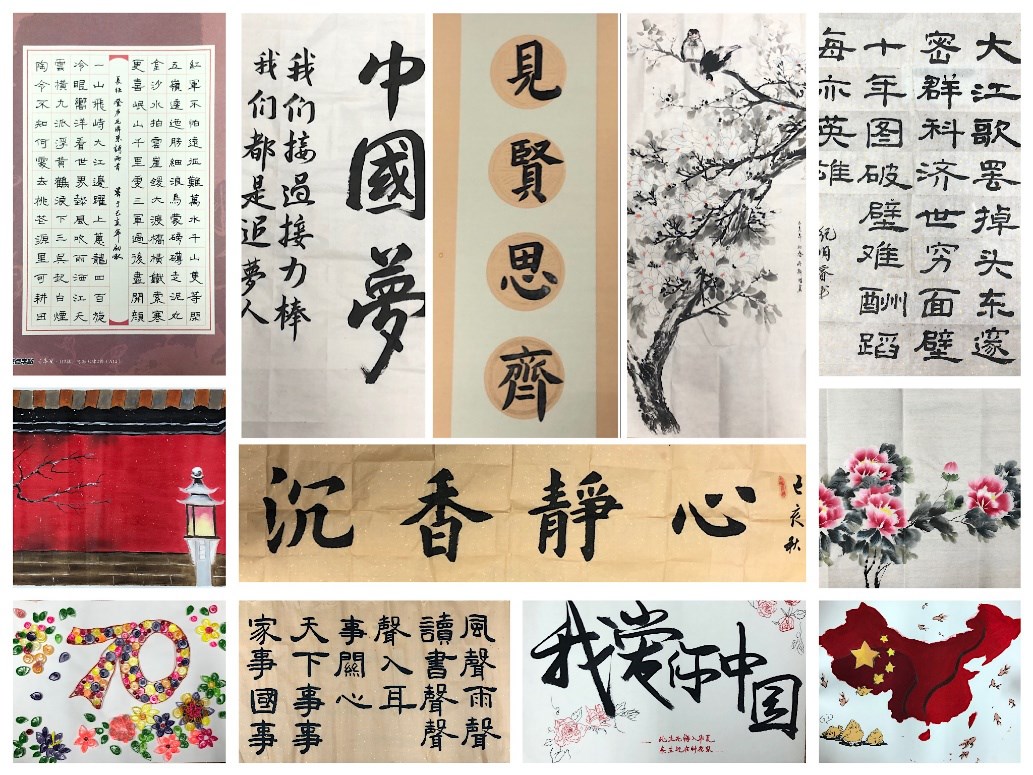 紅軍不怕遠征難萬水千山隻等閒
五嶺逶迤騰細浪烏蒙磅礴走泥丸
金沙水拍雲崖暖大渡橋橫鐵索寒
更喜岷山千里雪三軍過後盡開顏
一山飛峙大江邊躍上蔥蘢四百旋
冷眼向洋看世界熱風吹雨灑江天
雲橫九派浮黃鶴浪下三吳起白煙
陶令不知何處去桃花源里可耕田
中國夢
我们接過接力棒
我们都是追夢人
見賢思齊
大江歌罢掉头东邃
密群科济世穷面壁
十年图破壁难酬蹈
海亦英雄
沉香靜心
己亥秋
70
風聲雨聲
讀書聲聲
聲入耳
家事國事
天下事事
事關心
我爱你中国
此生无悔入华夏
来生还在种花家